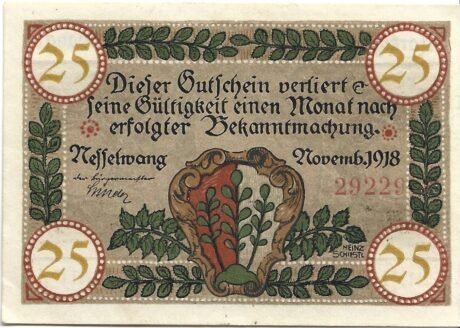 25 25
Dieser Gutschein verliert
seine Gültigkeit einen Monat nach
erfolgter Bekanntmachung.
Nesselwang Novemb. 1918
der Bürgermeister
29229
HEINZ
SCHIESTL
25 25